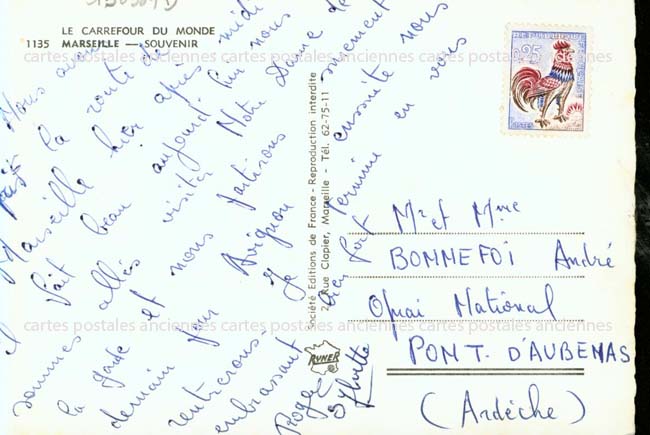 LE CARREFOUR DU MONDE
1135 MARSEILLE — SOUVENIR
Nous avons
pris la route de midi
Marseille hier après
il fait beau aujourd'hui nous
sommes allés visiter Notre Dame de
la garde et nous partirons
demain pour Avignon
rentrerons
embrassant
Roger
Sylvette
ensuite nous
bien fort
termine en vous
Société Editions de France - Reproduction interdite
2, Rue Clapier, Marseille - Tél. 62-75-11
RYNER
0,25
POSTES
Mr et Mme
BONNEFOI André
Quai National
PONT. D'AUBENAS
(Ardèche)
cartes postales anciennes cartes postales anciennes cartes postales anciennes
cartes postales anciennes cartes postales anciennes cartes postales anciennes